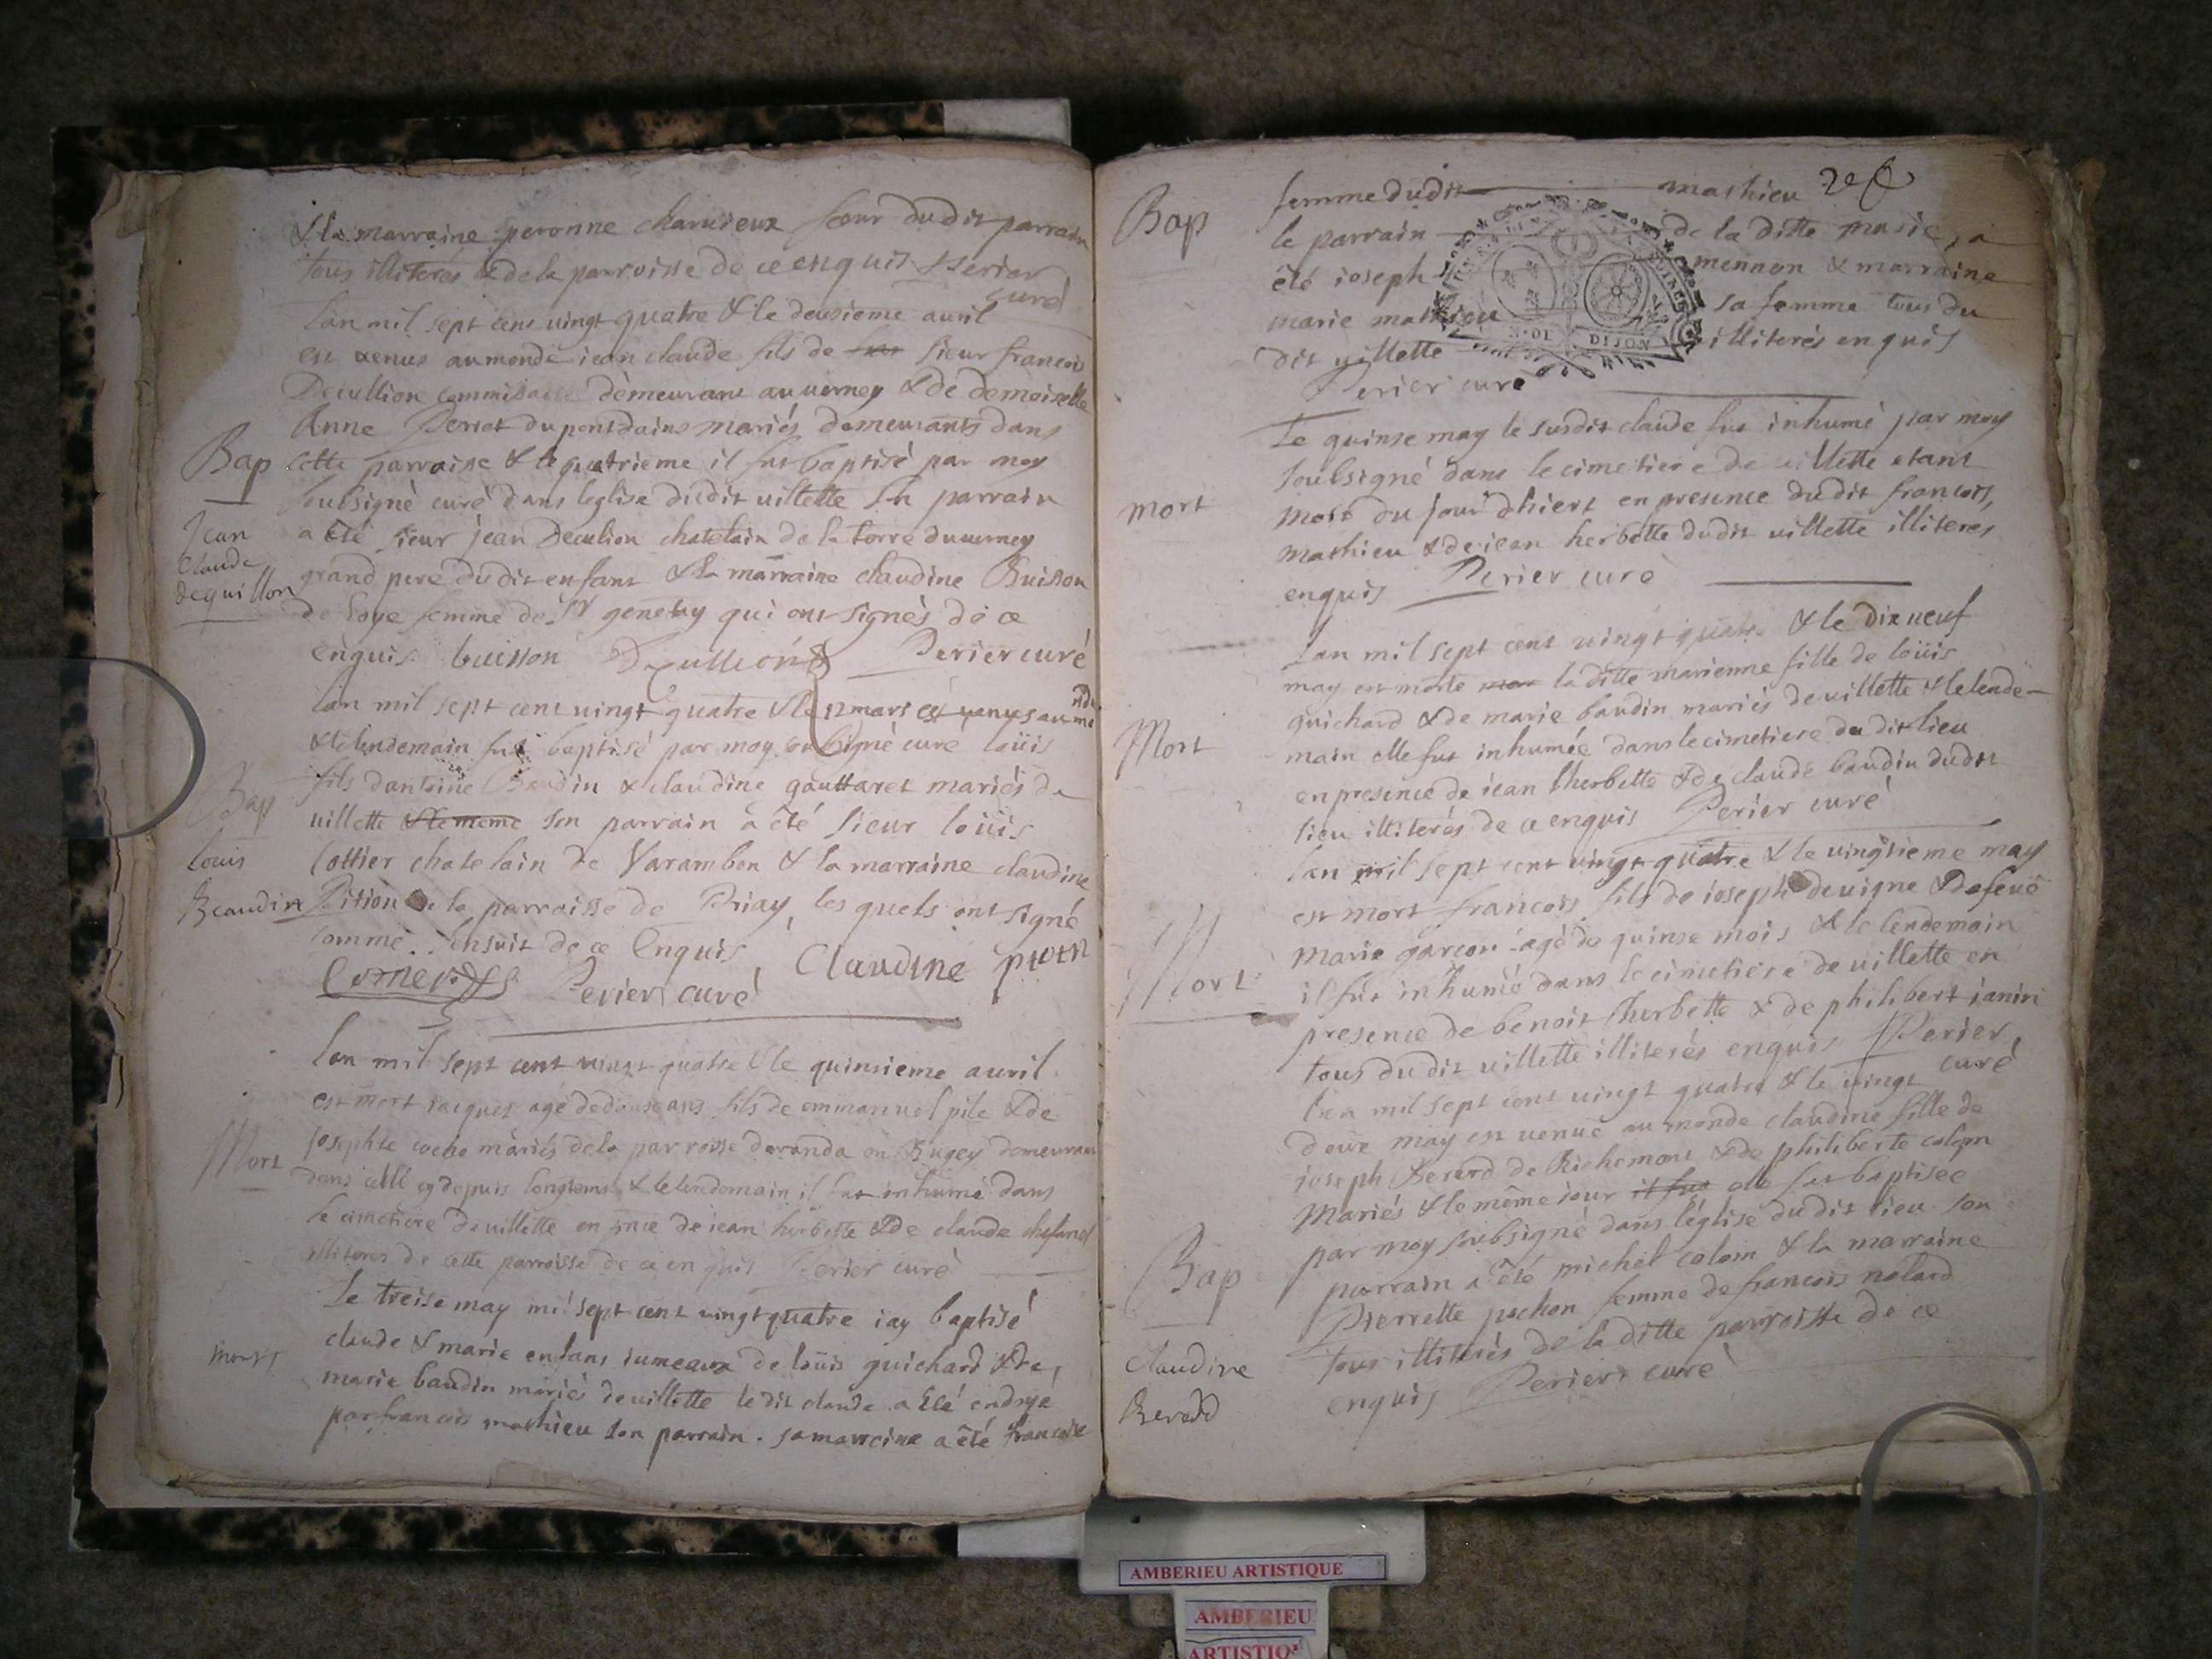 & la marraine peronne charvieux sœur dudit parrain
tous illiterés & de la parroisse de ce enquis Perier
curé
Lan mil sept cent vingt quatre & le deusieme auril
est venus au monde jean claude fils de sieur francois
Decullion commissaire demeurant au verney & de demoiselle
Anne Perret du pontdains mariés demeurants dans
Bap
cette parroisse & le quatrieme il fut baptisé par moy
soubsigné curé dans leglise dudit villette son parrain
Jean
claude
dequillon
a été sieur jean Decullion chatelain de la torre du verney
grand pere dudit enfant & la marraine claudine Buisson
de loye femme de Sr genetuy qui ont signés de ce
enquis buisson Decullion Perier curé
Lan mil sept cent vingt quatre & le 12 mars est venus au monde
& le lendemain fut baptisé par moy soubsigné curé loüis
fils dantoine Baudin & claudine gauttaret mariés de
Bap
louis
Beaudin
villette & le meme son parrain a été sieur loüis
Cottier chatelain de Varambon & la marraine claudine
Pition de la parroisse de Priay, les quels ont signé
comme ensuit de ce Enquis Claudine pition
Perier curé
Lan mil sept cent vingt quatre & le quinsieme auril
est mort jacques agé de douse ans fils de emmanuel pile & de
Mort
josephte mariés de la parroisse daranda en Bugey demeurant
dans celle cy depuis longtems & le lendemain il fut inhumé dans
le cimetiere de villette en pnce de jean herbette & de claude
illiteres de cette parroisse de ce enquis Perier curé
Le treise may mil sept cent vingt quatre jay baptisé
morts
claude & marie enfans jumeaux de loüis guichard & de
marie baudin mariés de villette le dit claude a été
par francois mathieu son parrain. sa marraine a été francoise
Bap
femme dudit mathieu
le parrain de la ditte marie, a
été joseph mennon & marraine
marie mathieu sa femme tous du
dit villette illiterés enquis
Perier curé
DIJON
Le quinse may le susdit claude fut inhumé par moy
soubsigné dans le cimetiere de villette etant
mort
mort du jour dhiert en presence dudit francois
mathieu & de jean herbette dudit villette illiteres
enquis Perier curé
Lan mil sept cent vingt quatre & le dixneuf
may est morte la ditte marienne fille de loüis
guichard & de marie baudin mariés de villette & le lende-
Mort
main elle fut inhumée dans le cimetiere du dit lieu
en presence de jean lherbette & de claude baudin dudit
lieu illiterés de ce enquis Perier curé
Lan mil sept cent vingt quatre & le vingtieme may
est mort francois fils de joseph devigne & defeue
Mort
marie garcon agé de quinse mois & le lendemain
il fut inhumé dans le cimetiere de villette en
presence de benoit lherbette & de philibert janin
tous dudit villette illiterés enquis Perier
curé
Lan mil sept cent vingt quatre & le vingt
douse may est venue au monde claudine fille de
joseph Berard de Richemont & de philiberte colom
mariés & le même jour il fut elle fut baptisee
par moy soubsigné dans léglise dudit lieu son
Bap
Claudine
Berard
parrain a été michel colom & la marraine
Pierrette pochon femme de francois nolard
tous illiterés de la ditte parroisse de ce
enquis Perier curé
AMBERIEU ARTISTIQUE
AMBERIEU
ARTISTIQ